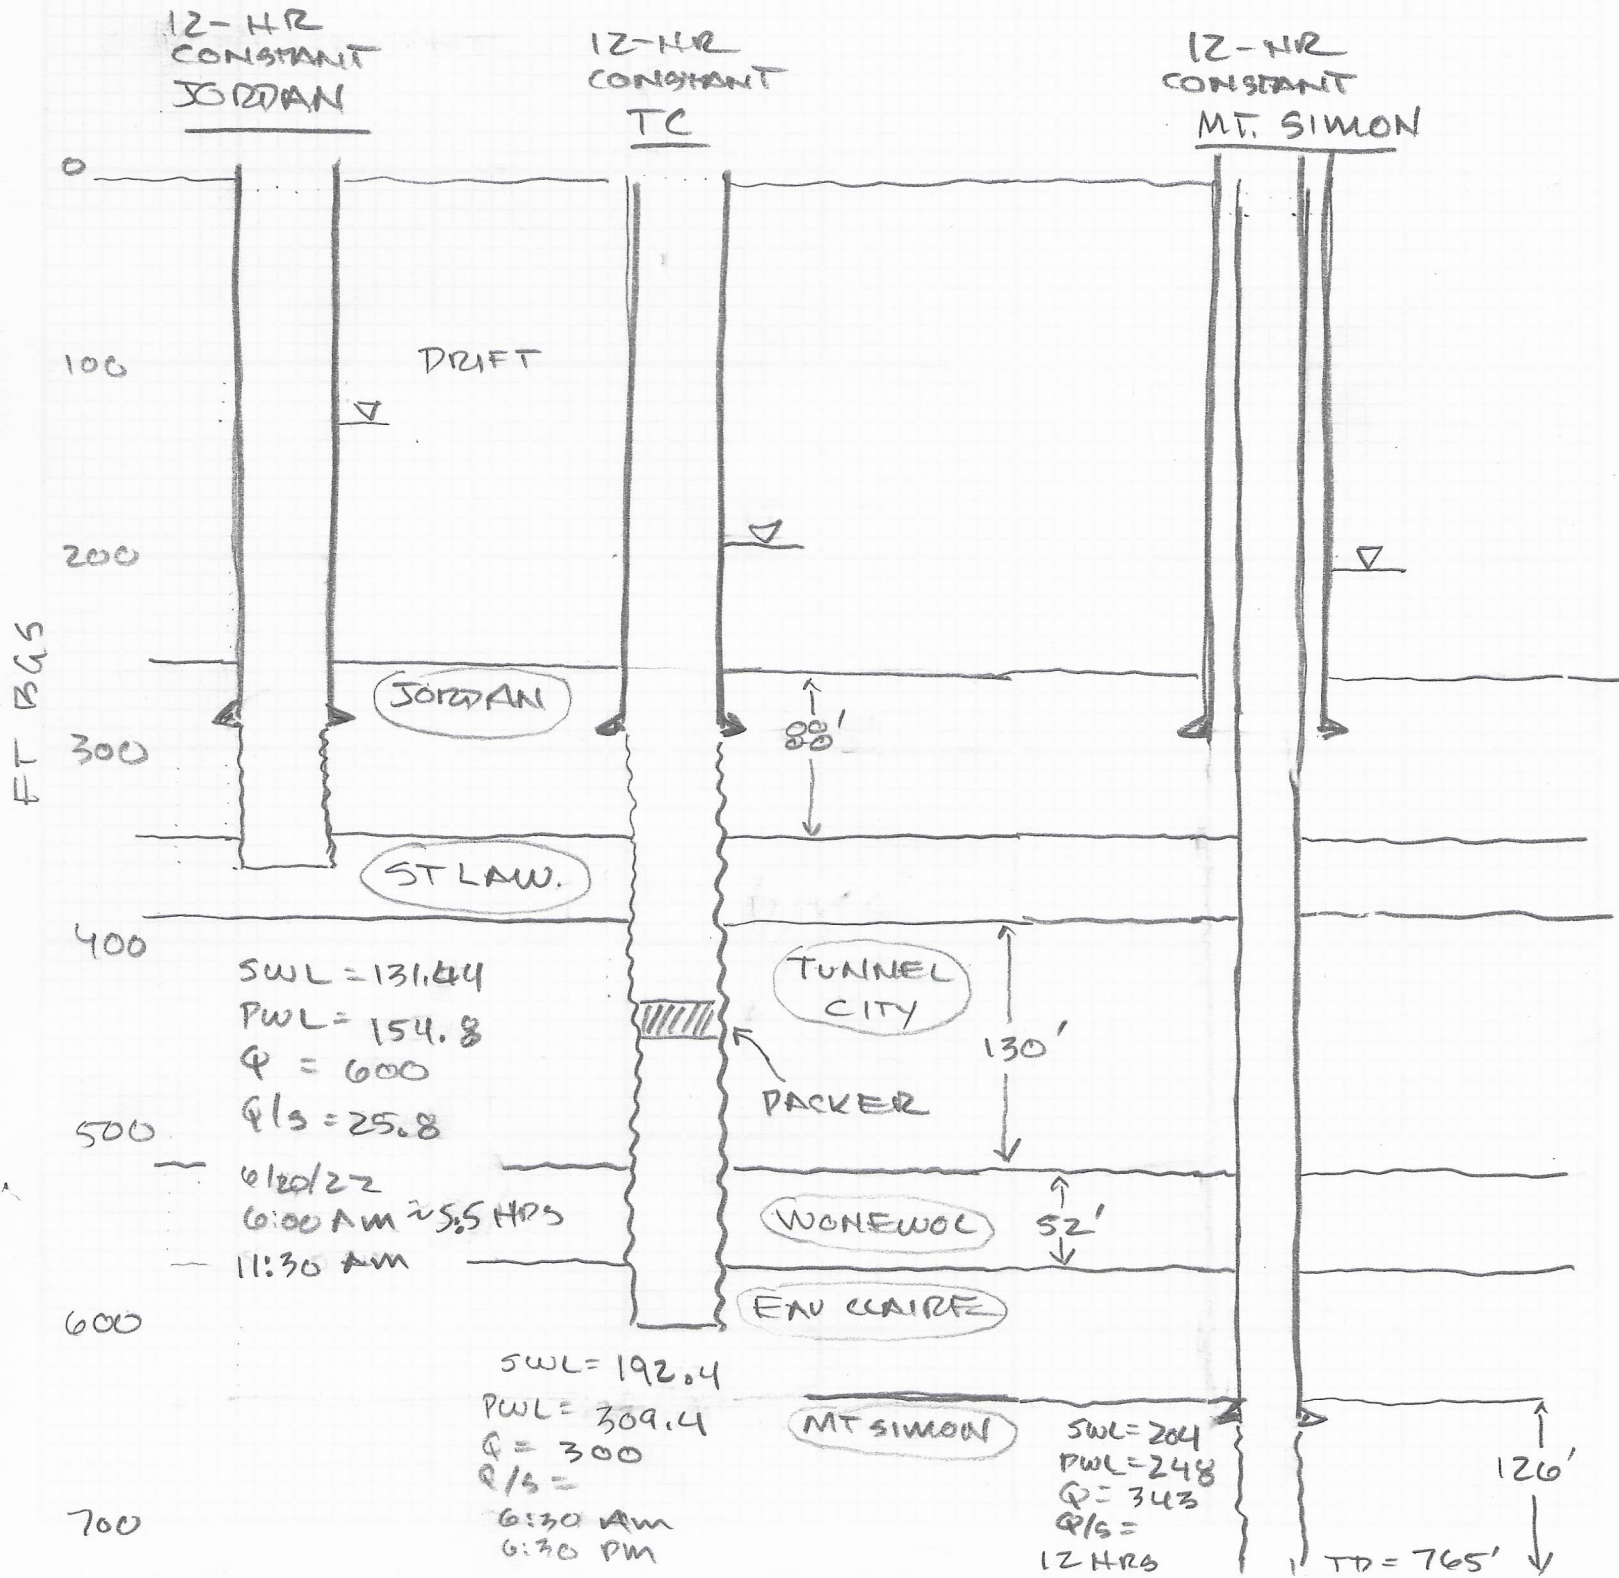 12-HR
CONSTANT
JORDAN
12-HR
CONSTANT
TC
12-HR
CONSTANT
MT. SIMON
0
100
200
300
400
500
600
700
FT BGS
DRIFT
JORDAN
88'
ST LAW.
TUNNEL
CITY
130'
PACKER
WONEWOC
52'
EAU CLAIRE
MT SIMON
SWL = 131.44
PWL = 154.8
Q = 600
Q/s = 25.8
6/20/22
6:00 AM ~5.5 HRS
11:30 AM
SWL = 192.4
PWL = 309.4
Q = 300
Q/s =
6:30 AM
6:30 PM
SWL = 204
PWL = 248
Q = 343
Q/s =
12 HRS
126'
TD = 765'